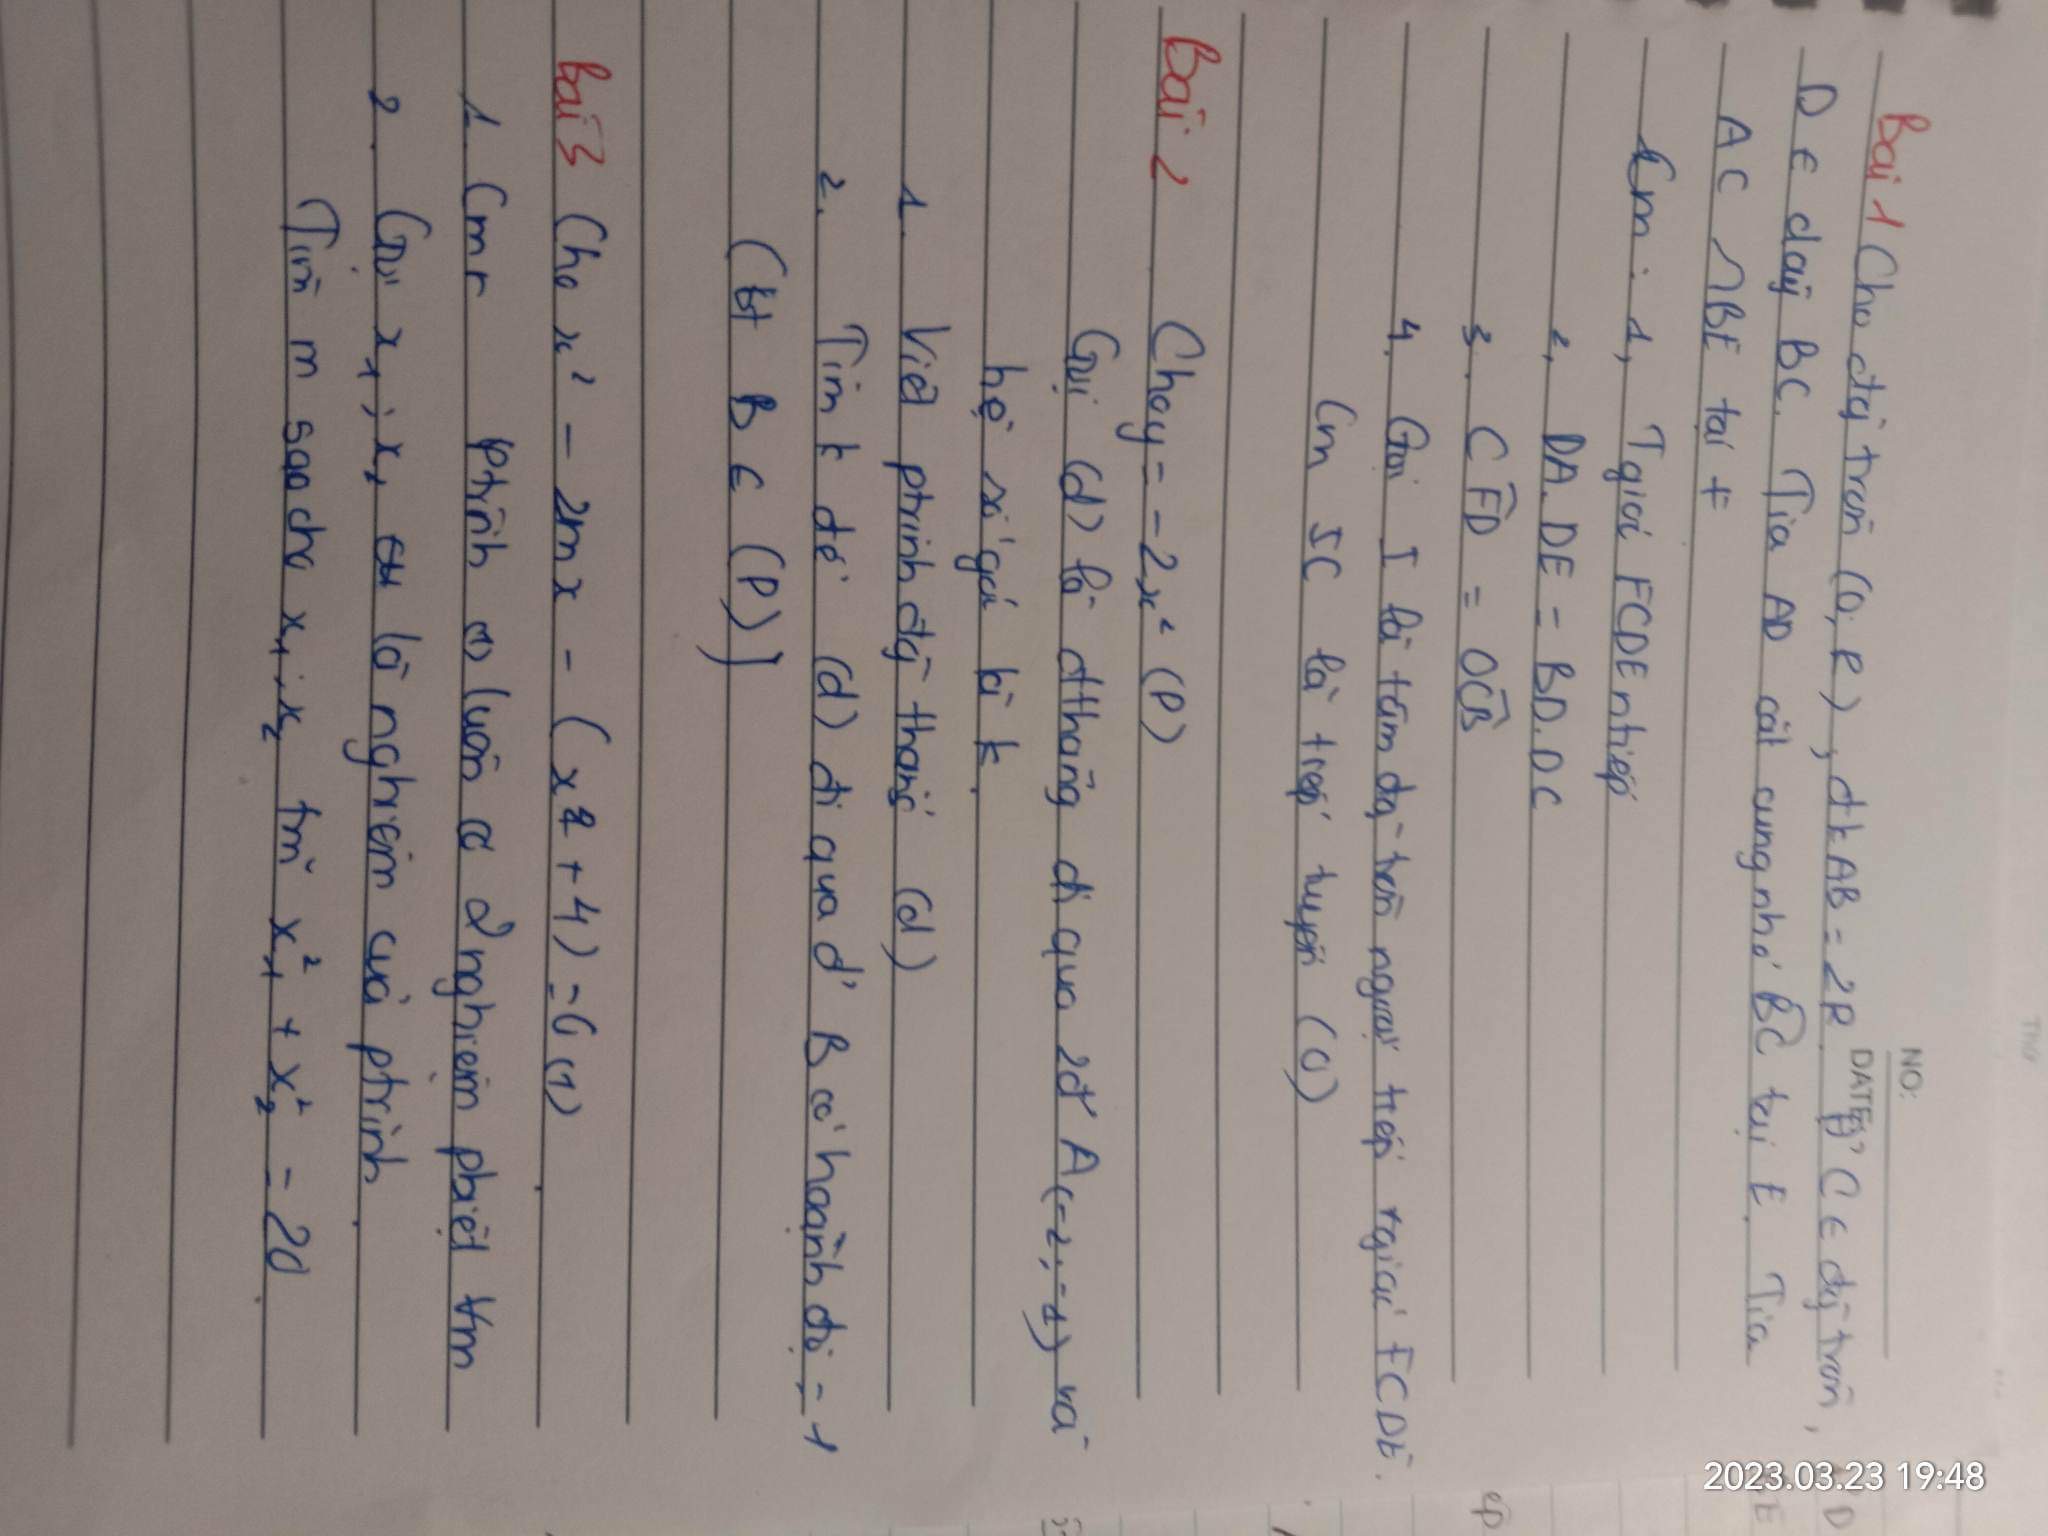 NO:
DATE:
Bài 1 Cho đg tròn (O; R), đk AB = 2R. Đ' C ∈ đg tròn,
D ∈ dây BC. Tia AD cắt cung nhỏ BC tại E. Tia
AC ∩ BE tại F
Cm: 1, Tgiác FCDE ntiếp
2, DA.DE = BD.DC
3. CFD = OCB
4. Gọi I là tâm đg tròn ngoại tiếp tgiác FCDE.
Cm IC là tiếp tuyến (O)
Bài 2 Cho y = -2x² (P)
Gọi (d) là đthẳng đi qua 2đ' A(-2;-1) và
hệ số góc là k.
1. Viết ptrình đg thẳng (d)
2. Tìm k để (d) đi qua đ' B có hoành độ = 1
(bt B ∈ (P))
Bài 3 Cho x² - 2mx - (x² + 4) = 0 (1)
1. Cmr ptrình (1) luôn có 2 nghiệm pbiệt ∀m
2. Gọi x₁; x₂ là nghiệm của ptrình
Tìm m sao cho x₁; x₂ tm x₁² + x₂² = 20
2023.03.23 19:48